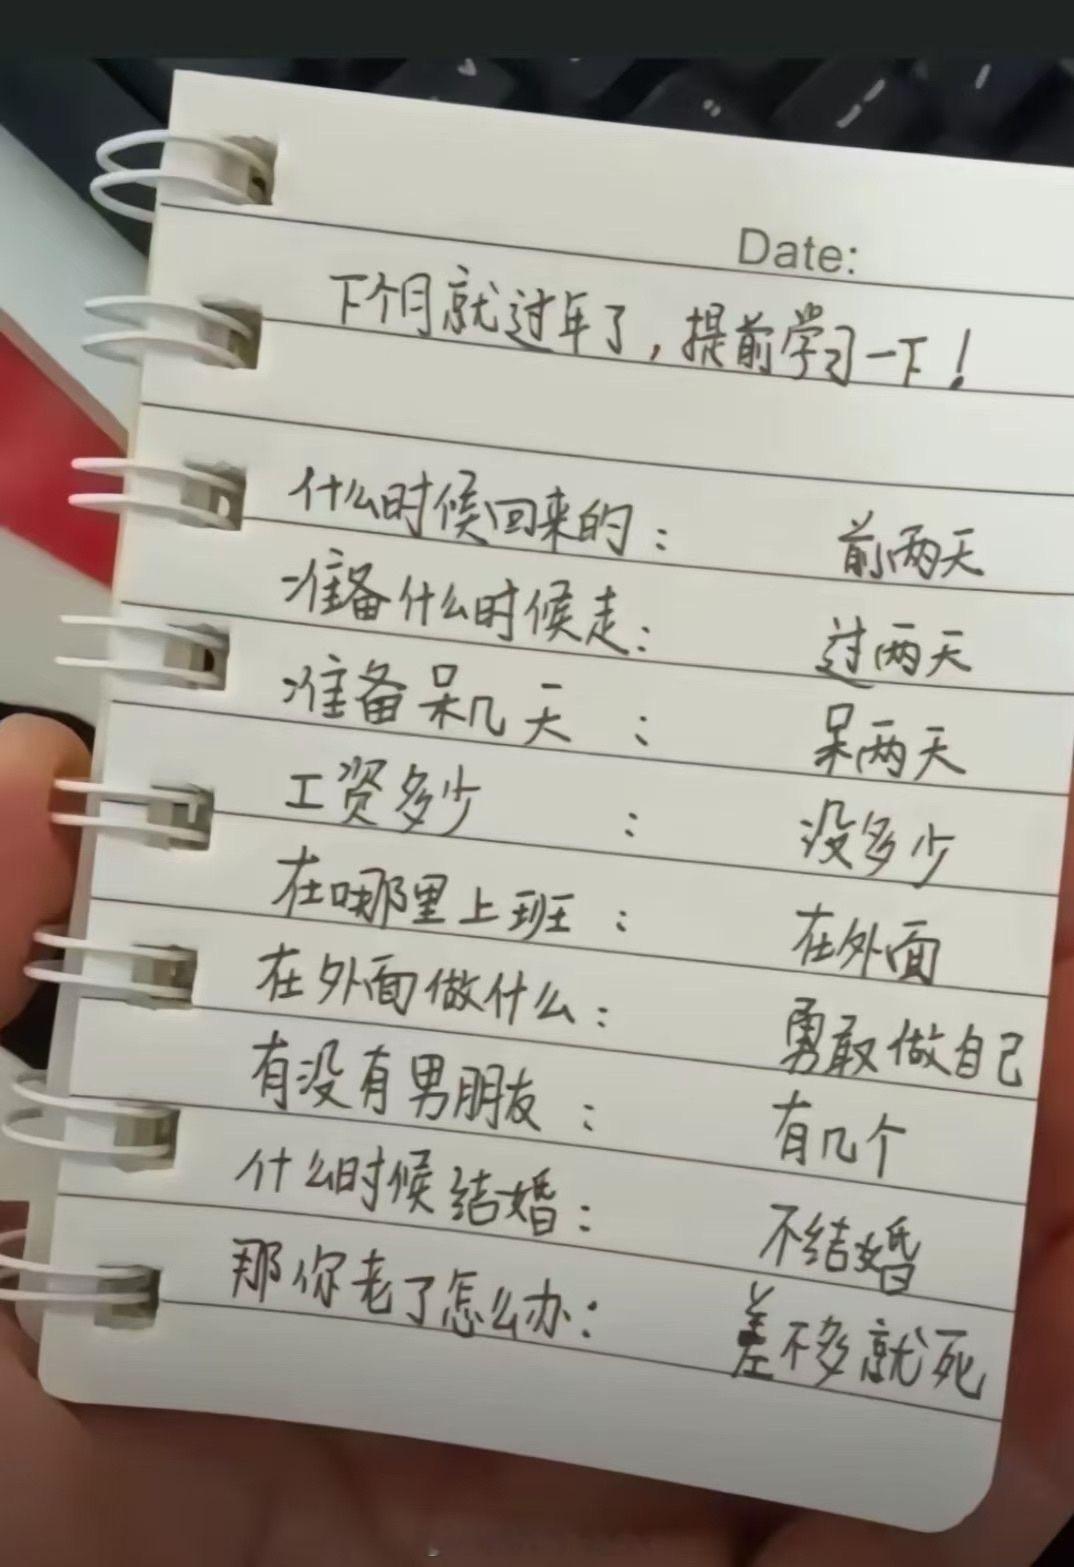 Date:
下个月就过年了，提前学习一下！
什么时候回来的： 前两天
准备什么时候走： 过两天
准备呆几天： 呆两天
工资多少： 没多少
在哪里上班： 在外面
在外面做什么： 勇敢做自己
有没有男朋友： 有几个
什么时候结婚： 不结婚
那你老了怎么办： 差不多就死